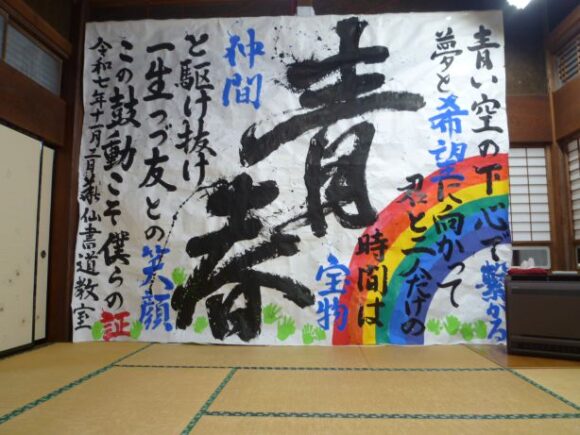 青い空の下心で繋がる
夢と希望に向かって
君と二人だけの
時間は
宝物
青春
仲間
と駆け抜け
一生つづ友との笑顔
この鼓動こそ僕らの証
令和七年十一月三日 仙書道教室